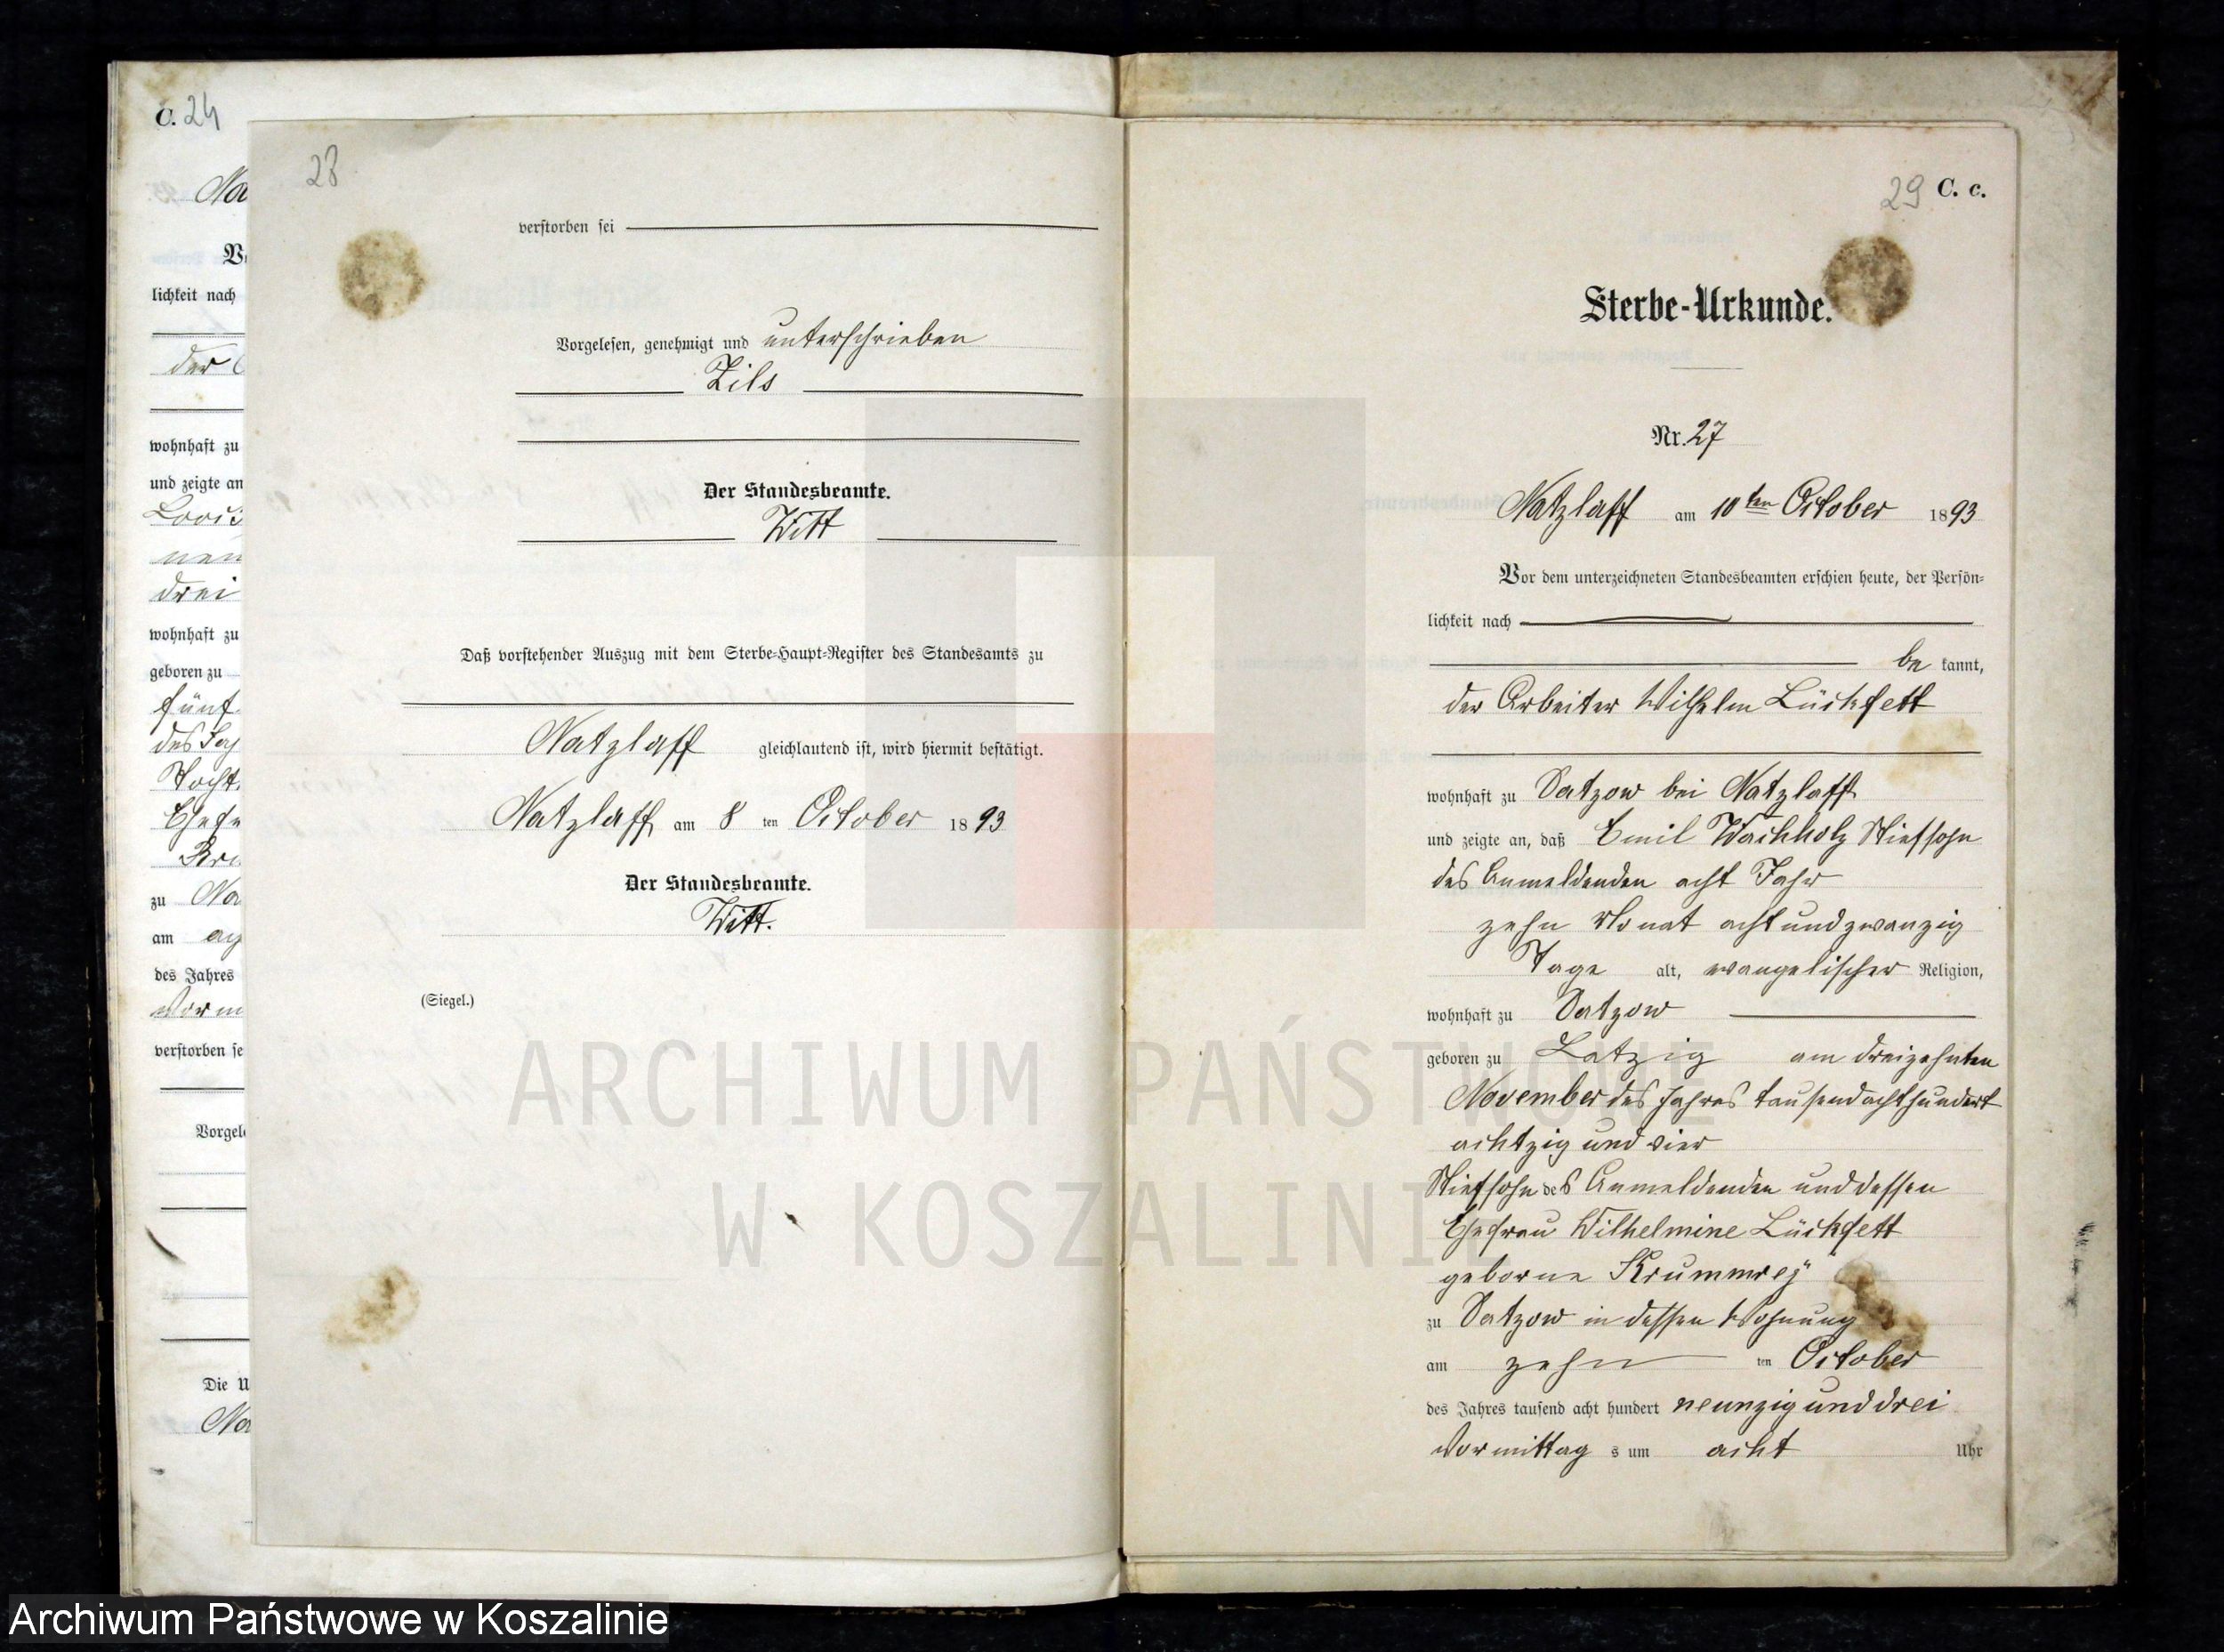 C. 24
Na
V
lichkeit nach
der
wohnhaft zu
und zeigte an
drei
wohnhaft zu
geboren zu
fünf
des Ja
Tocht
Ehefr
Kru
zu Na
am
des Jahres
Vorm
verstorben se
Vorgele
Die U
Na
28
verstorben sei
Vorgelesen, genehmigt und unterschrieben
Zils
Der Standesbeamte.
Witt
Daß vorstehender Auszug mit dem Sterbe-Haupt-Register des Standesamts zu
Natzlaff gleichlautend ist, wird hiermit bestätigt.
Natzlaff am 8 ten October 1893
Der Standesbeamte.
Witt.
(Siegel.)
29 C. c.
Sterbe-Urkunde.
Nr. 27
Natzlaff am 10ten October 1893
Vor dem unterzeichneten Standesbeamten erschien heute, der Persön-
lichkeit nach
be kannt,
der Arbeiter Wilhelm Lückfett
wohnhaft zu Satzow bei Natzlaff
und zeigte an, daß Emil Wachholz Stiefsohn
des Anmeldenden acht Jahr
zehn Monat acht und zwanzig
Tage alt, evangelischer Religion,
wohnhaft zu Satzow
geboren zu Latzig am dreizehnten
November des Jahres tausend achthundert
achtzig und vier
Stiefsohn des Anmeldenden und dessen
Ehefrau Wilhelmine Lückfett
geborne Krummrey
zu Satzow in dessen Wohnung
am zehn ten October
des Jahres tausend acht hundert neunzig und drei
Vormittag s um acht Uhr
ARCHIWUM PAŃSTWOWE
W KOSZALINI
Archiwum Państwowe w Koszalinie